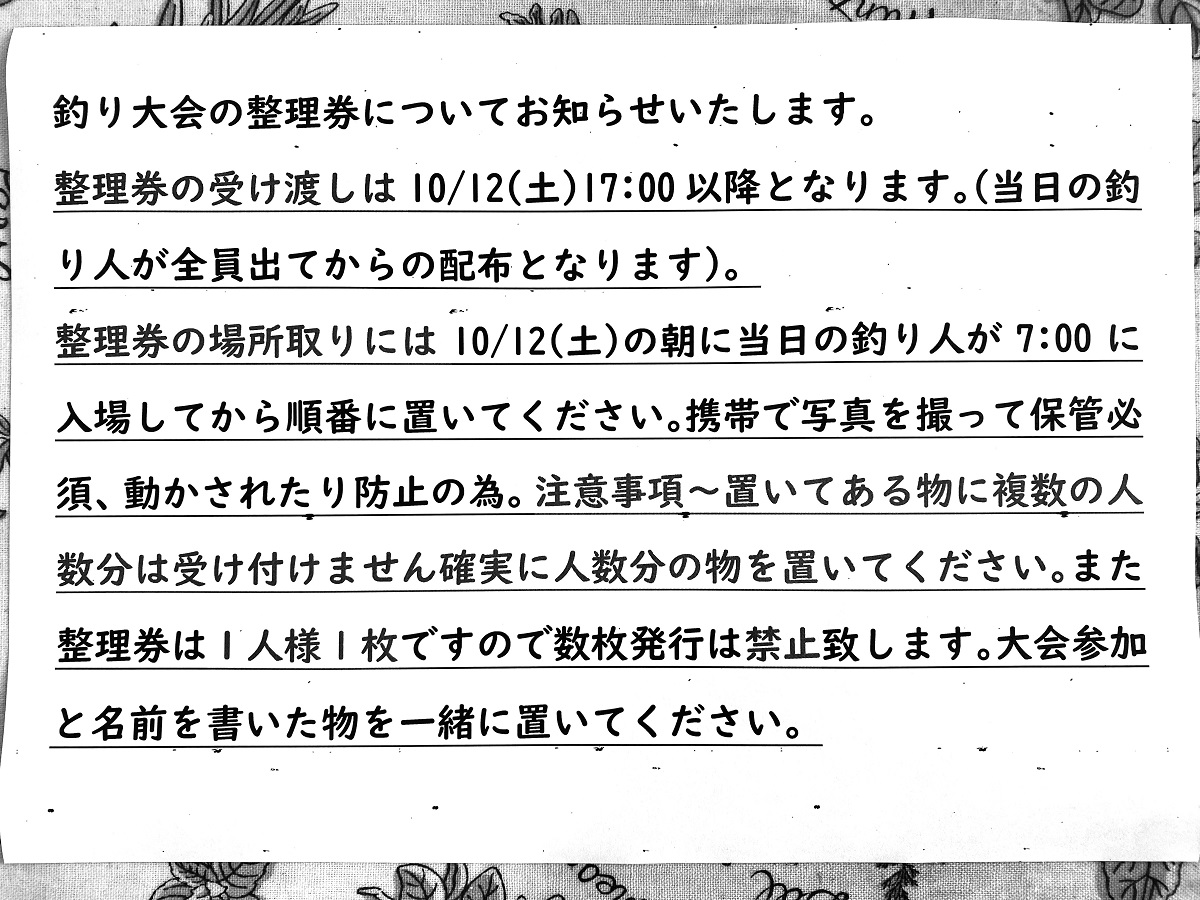 釣り大会の整理券についてお知らせいたします。
整理券の受け渡しは 10/12(土)17:00 以降となります。(当日の釣
り人が全員出てからの配布となります)。
整理券の場所取りには 10/12(土)の朝に当日の釣り人が 7:00 に
入場してから順番に置いてください。携帯で写真を撮って保管必
須、動かされたり防止の為。注意事項～置いてある物に複数の人
数分は受け付けません確実に人数分の物を置いてください。また
整理券は1人様1枚ですので数枚発行は禁止致します。大会参加
と名前を書いた物を一緒に置いてください。